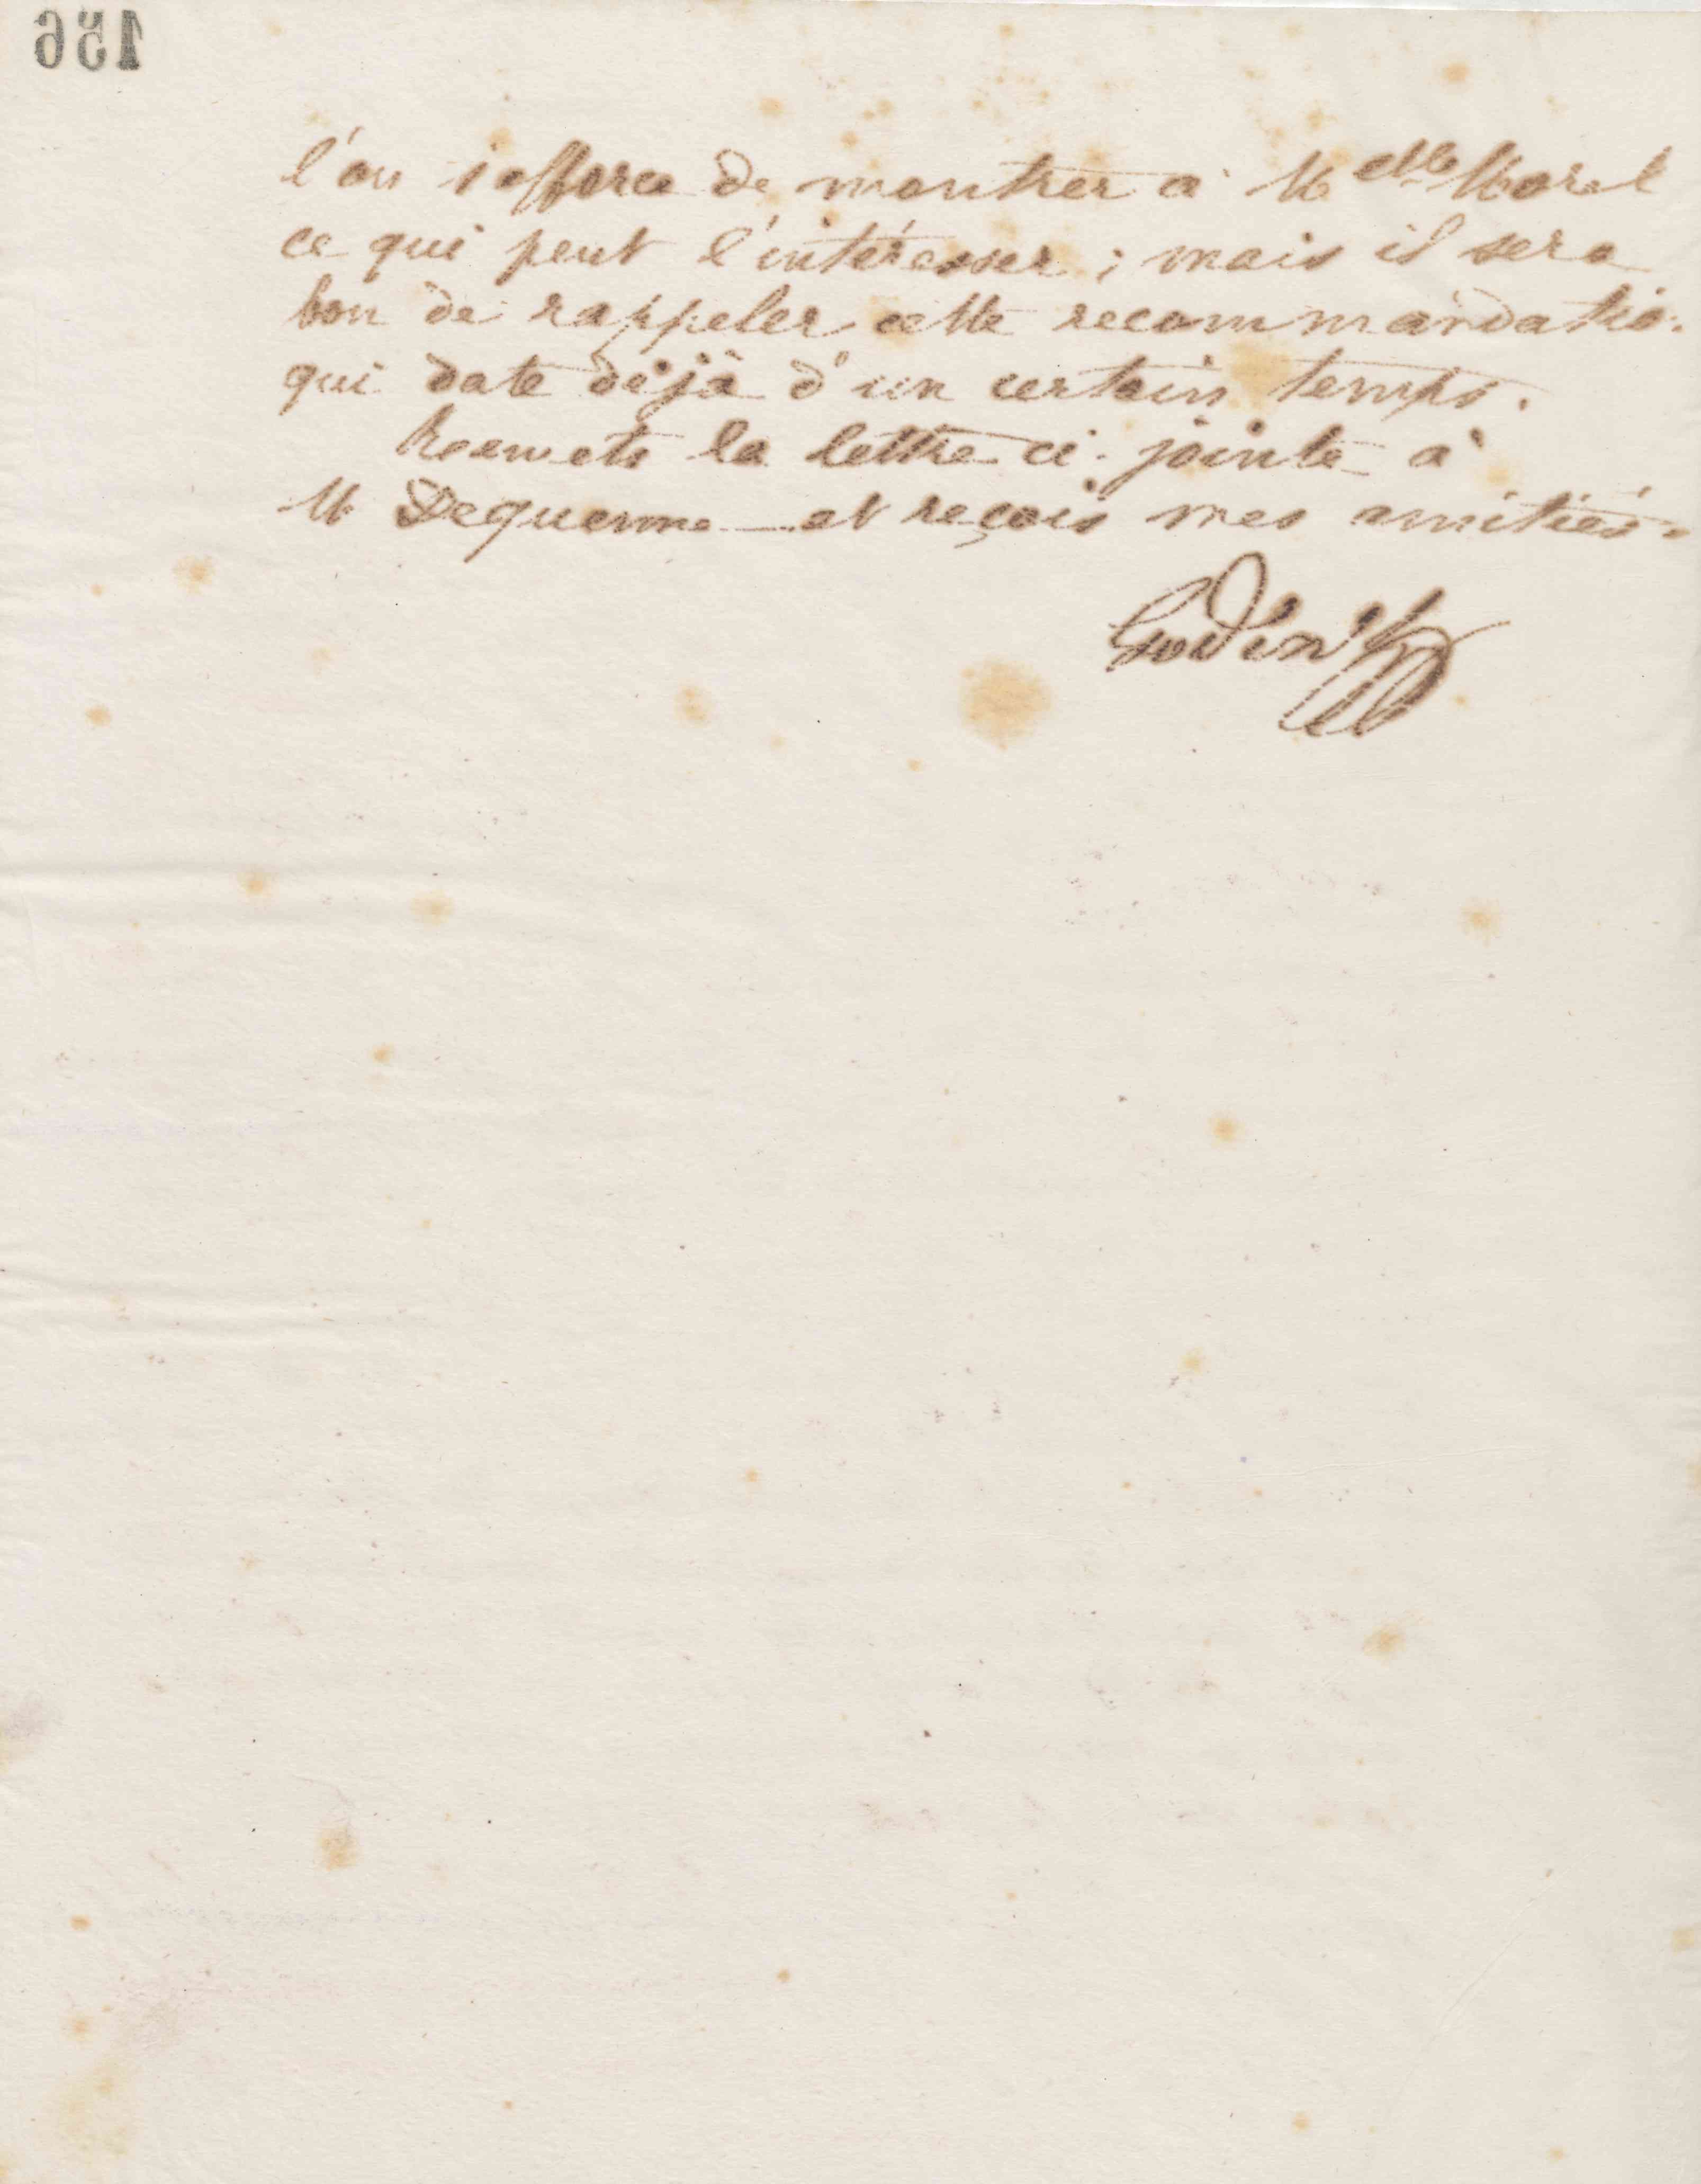 156
l'on s'efforce de montrer à Melle Morel
ce qui peut l'intéresser ; mais il sera
bon de rappeler cette recommandatio
qui date déjà d'un certain temps.
Remets la lettre ci-jointe à
M Dequenne et reçois mes amitiés.
Godin